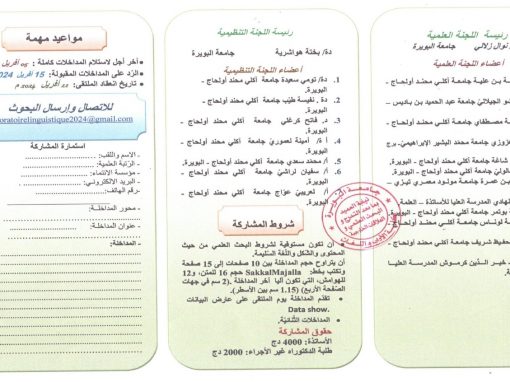 رئيسة اللجنة العلمية
نوال زلالي جامعة البويرة
أعضاء اللجنة العلمية
بن علية جامعة أكلي محند أولحاج -
الجيلالي جامعة عبد الحميد بن باديس -
مصطفاي جامعة أكلي محند أولحاج -
جامعة محمد البشير الإبراهيمي-
شاغة جامعة أكلي محند أولحاج - البويرة.
بن عمرة جامعة مولود معمري تيزي
الهادي المدرسة العليا للأساتذة - العلمة
جامعة أكلي محند أولحاج - البويرة.
لوناس جامعة أكلي محند أولحاج -
حفيظ شريف جامعة أكلي محند أولحاج -
خير الدين كرموش المدرسة العليا
رئيسة اللجنة التنظيمية
دة/ بختة هواشرية جامعة البويرة
أعضاء اللجنة التنظيمية
1. دة/ تومي سعيدة جامعة أكلي محند أولحاج - البويرة.
2. دة/ نفيسة طيب جامعة أكلي محند أولحاج - البويرة.
3. د/ فاتح كرغلي جامعة أكلي محند أولحاج - البويرة.
4. أ/ أمينة لعموري جامعة أكلي محند أولحاج - البويرة.
5. أ/ محمد سعدي جامعة أكلي محند أولحاج - البويرة.
6. أ/ سفيان لراشي جامعة أكلي محند أولحاج - البويرة.
7. أ/ لعريبي عواج جامعة أكلي محند أولحاج - البويرة.
شروط المشاركة
أن تكون مستوفية لشروط البحث العلمي من حيث
المحتوى والشكل واللغة السليمة.
أن يتراوح حجم المداخلة بين 10 صفحات إلى 15 صفحة
وتكتب بخط: SakkalMajalla حجم 16 للمتن، و12
للهوامش، التي تكون آليا آخر المداخلة. (2 سم في جهات
الصفحة الأربع) (1.15 سم بين الأسطر).
- تقدم المداخلة يوم الملتقى على عارض البيانات
Data show.
- المداخلات الثنائية.
حقوق المشاركة
الأساتذة: 4000 دج
طلبة الدكتوراه غير الأجراء: 2000 دج
مواعيد مهمة
آخر أجل لاستلام المداخلات كاملة : 05 أفريل
الرد على المداخلات المقبولة: 15 أفريل 2024
تاريخ انعقاد الملتقى: أفريل 2024 م
للاتصال وإرسال البحوث
oratoirelinguistique2024@gmail.com
استمارة المشاركة
- الاسم واللقب:
- الرتبة العلمية:
- مؤسسة الانتماء:
- البريد الالكتروني:
- رقم الهاتف:
- محور المداخلة:
- عنوان المداخلة:
- المداخلة: